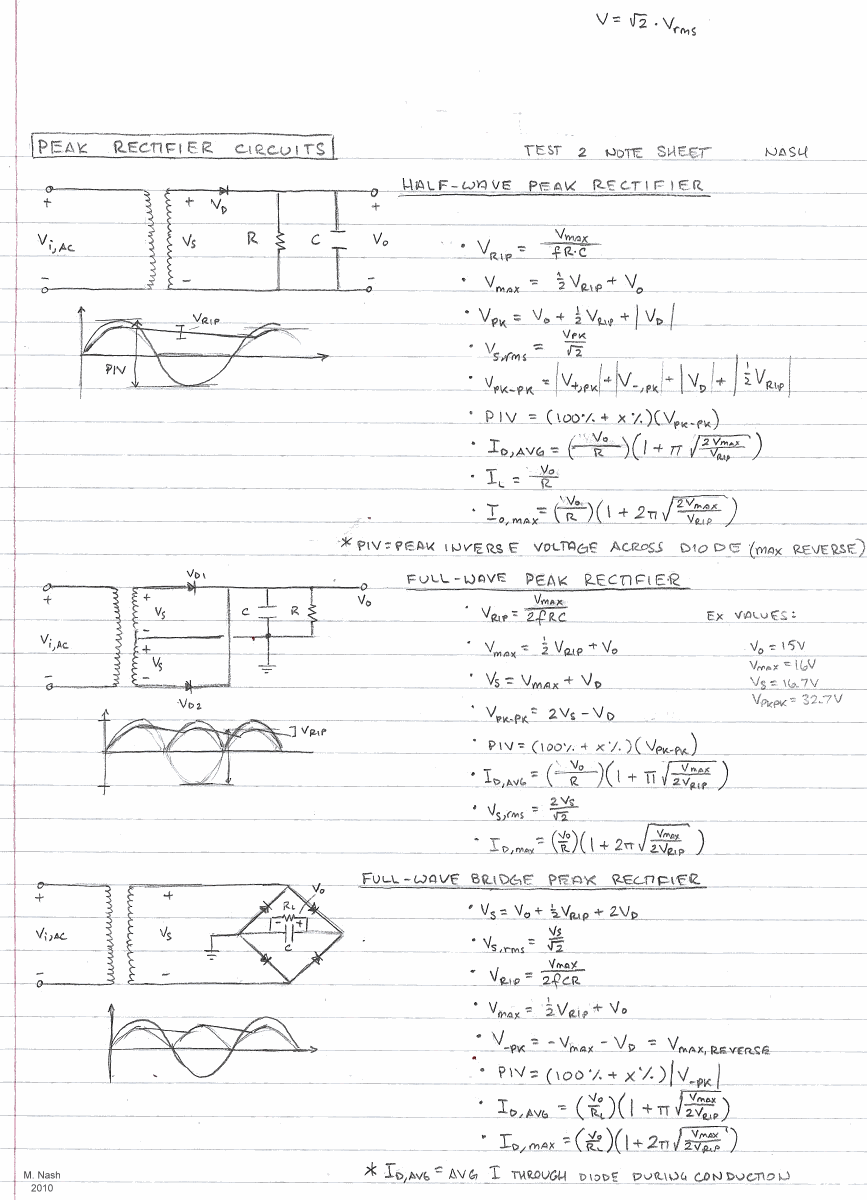 V = √2 · Vrms
PEAK RECTIFIER CIRCUITS
TEST 2 NOTE SHEET NASH
HALF-WAVE PEAK RECTIFIER
+ + VD +
Vi,AC VS R C Vo
− − −
VRIP
PIV
· VRIP = Vmax / fR·C
· VMAX = ½ VRIP + Vo
· VPK = Vo + ½ VRIP + |VD|
· VS,rms = VPK / √2
· VPK-PK = |V+,PK| + |V−,PK| + |VD| + |½ VRIP|
· PIV = (100% + x%)(VPK-PK)
· ID,AVG = (Vo / R)(1 + π √(2Vmax / VRIP))
· IL = Vo / R
· Io,MAX = (Vo / R)(1 + 2π √(2Vmax / VRIP))
* PIV = PEAK INVERSE VOLTAGE ACROSS DIODE (MAX REVERSE)
FULL-WAVE PEAK RECTIFIER
VD1
+ + VS C R Vo
Vi,AC −
+
VS
− −
VD2
VRIP
· VRIP = Vmax / 2fRC
· Vmax = ½ VRIP + Vo
· VS = VMAX + VD
· VPK-PK = 2VS − VD
· PIV = (100% + x%)(VPK-PK)
· ID,AVG = (Vo / R)(1 + π √(Vmax / 2VRIP))
· VS,rms = 2VS / √2
· ID,MAX = (Vo / R)(1 + 2π √(Vmax / 2VRIP))
EX VALUES:
Vo = 15V
VMAX = 16V
VS = 16.7V
VPKPK = 32.7V
FULL-WAVE BRIDGE PEAK RECTIFIER
+ + Vo
RL
− +
Vi,AC VS C
− −
· VS = Vo + ½ VRIP + 2VD
· VS,rms = VS / √2
· VRIP = Vmax / 2fCR
· Vmax = ½ VRIP + Vo
· V-PK = −VMAX − VD = VMAX, REVERSE
· PIV = (100% + x%)|V-PK|
· ID,AVG = (Vo / RL)(1 + π √(Vmax / 2VRIP))
· ID,MAX = (Vo / RL)(1 + 2π √(Vmax / 2VRIP))
* ID,AVG = AVG I THROUGH DIODE DURING CONDUCTION
M. Nash
2010